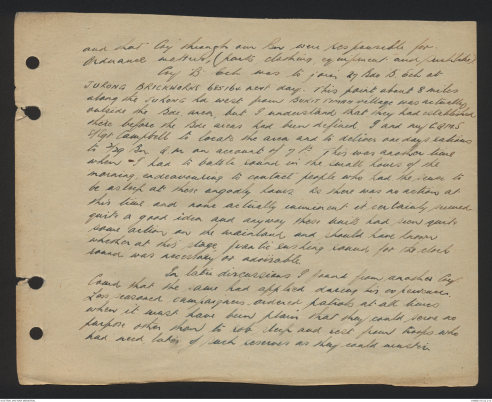 and that Coy through our Bn were responsible for
Ordnance matters (boots clothing, equipment and
Coy "B" Ech was to join 27 Bde B Ech at
JURONG BRICKWORKS next day. This point about 8 miles
along the JURONG Rd west from BUKIT TIMAH village was actually
outside the Bde area, but I understand that they had established
there before the Bde areas had been defined. I and my CQMS
S/Sgt Campbell to locate the area and to deliver one days rations
to 2/29 Bn on account of This was another time
when I had to battle round in the small hours of the
morning endeavouring to contact people who had the sense to
be asleep at these ungodly hours. As there was no action at
this time and none actually imminent it certainly seemed
quite a good idea and anyway these units had seen quite
some action on the mainland and should have known
whether at this stage frantic rushing round for the clock
round was necessary or advisable.
In later discussions I found from another Coy
Comd that the same had applied during his experience.
Less seasoned campaigners ordered patrols at all hours
when it must have been plain that they could serve no
purpose other than to rob sleep and rest from troops who
had need later of such reserves as they could muster.